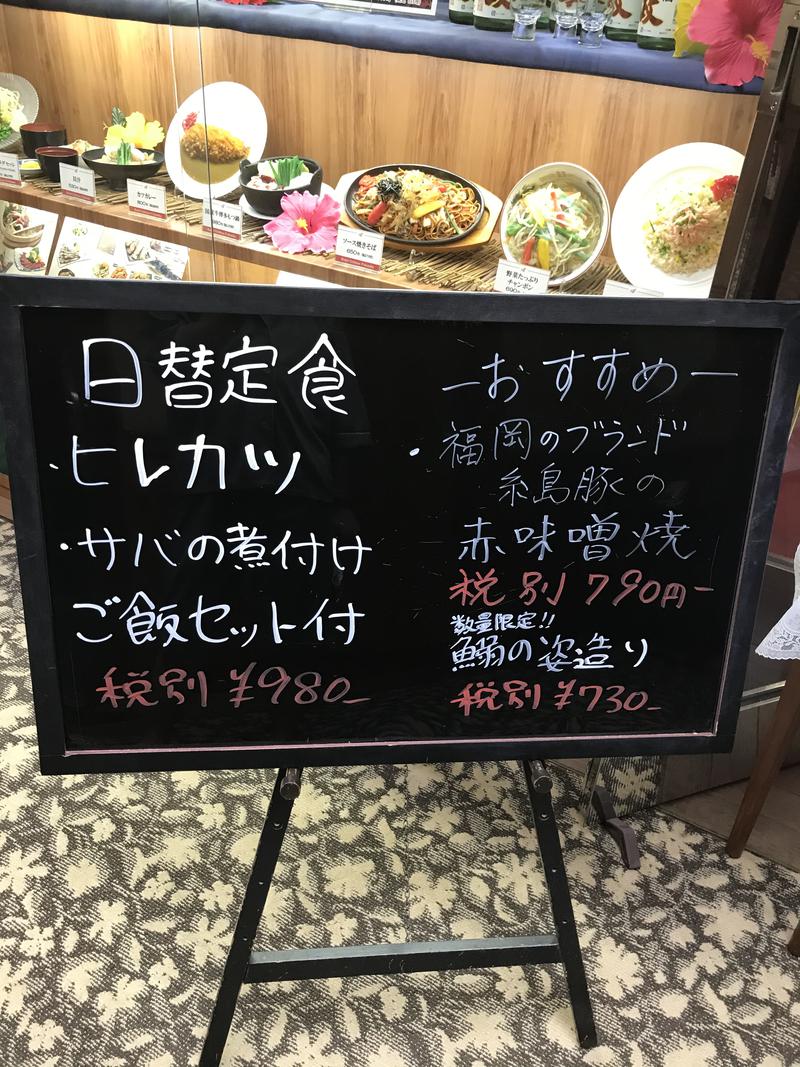 カツカレー
ソース焼きそば
650円
野菜たっぷり
チャンポン
日替定食
・ヒレカツ
・サバの煮付け
ご飯セット付
税別 ¥980-
ーおすすめー
・福岡のブランド
糸島豚の
赤味噌焼
税別 790円-
数量限定!!
鰯の姿造り
税別 ¥730-